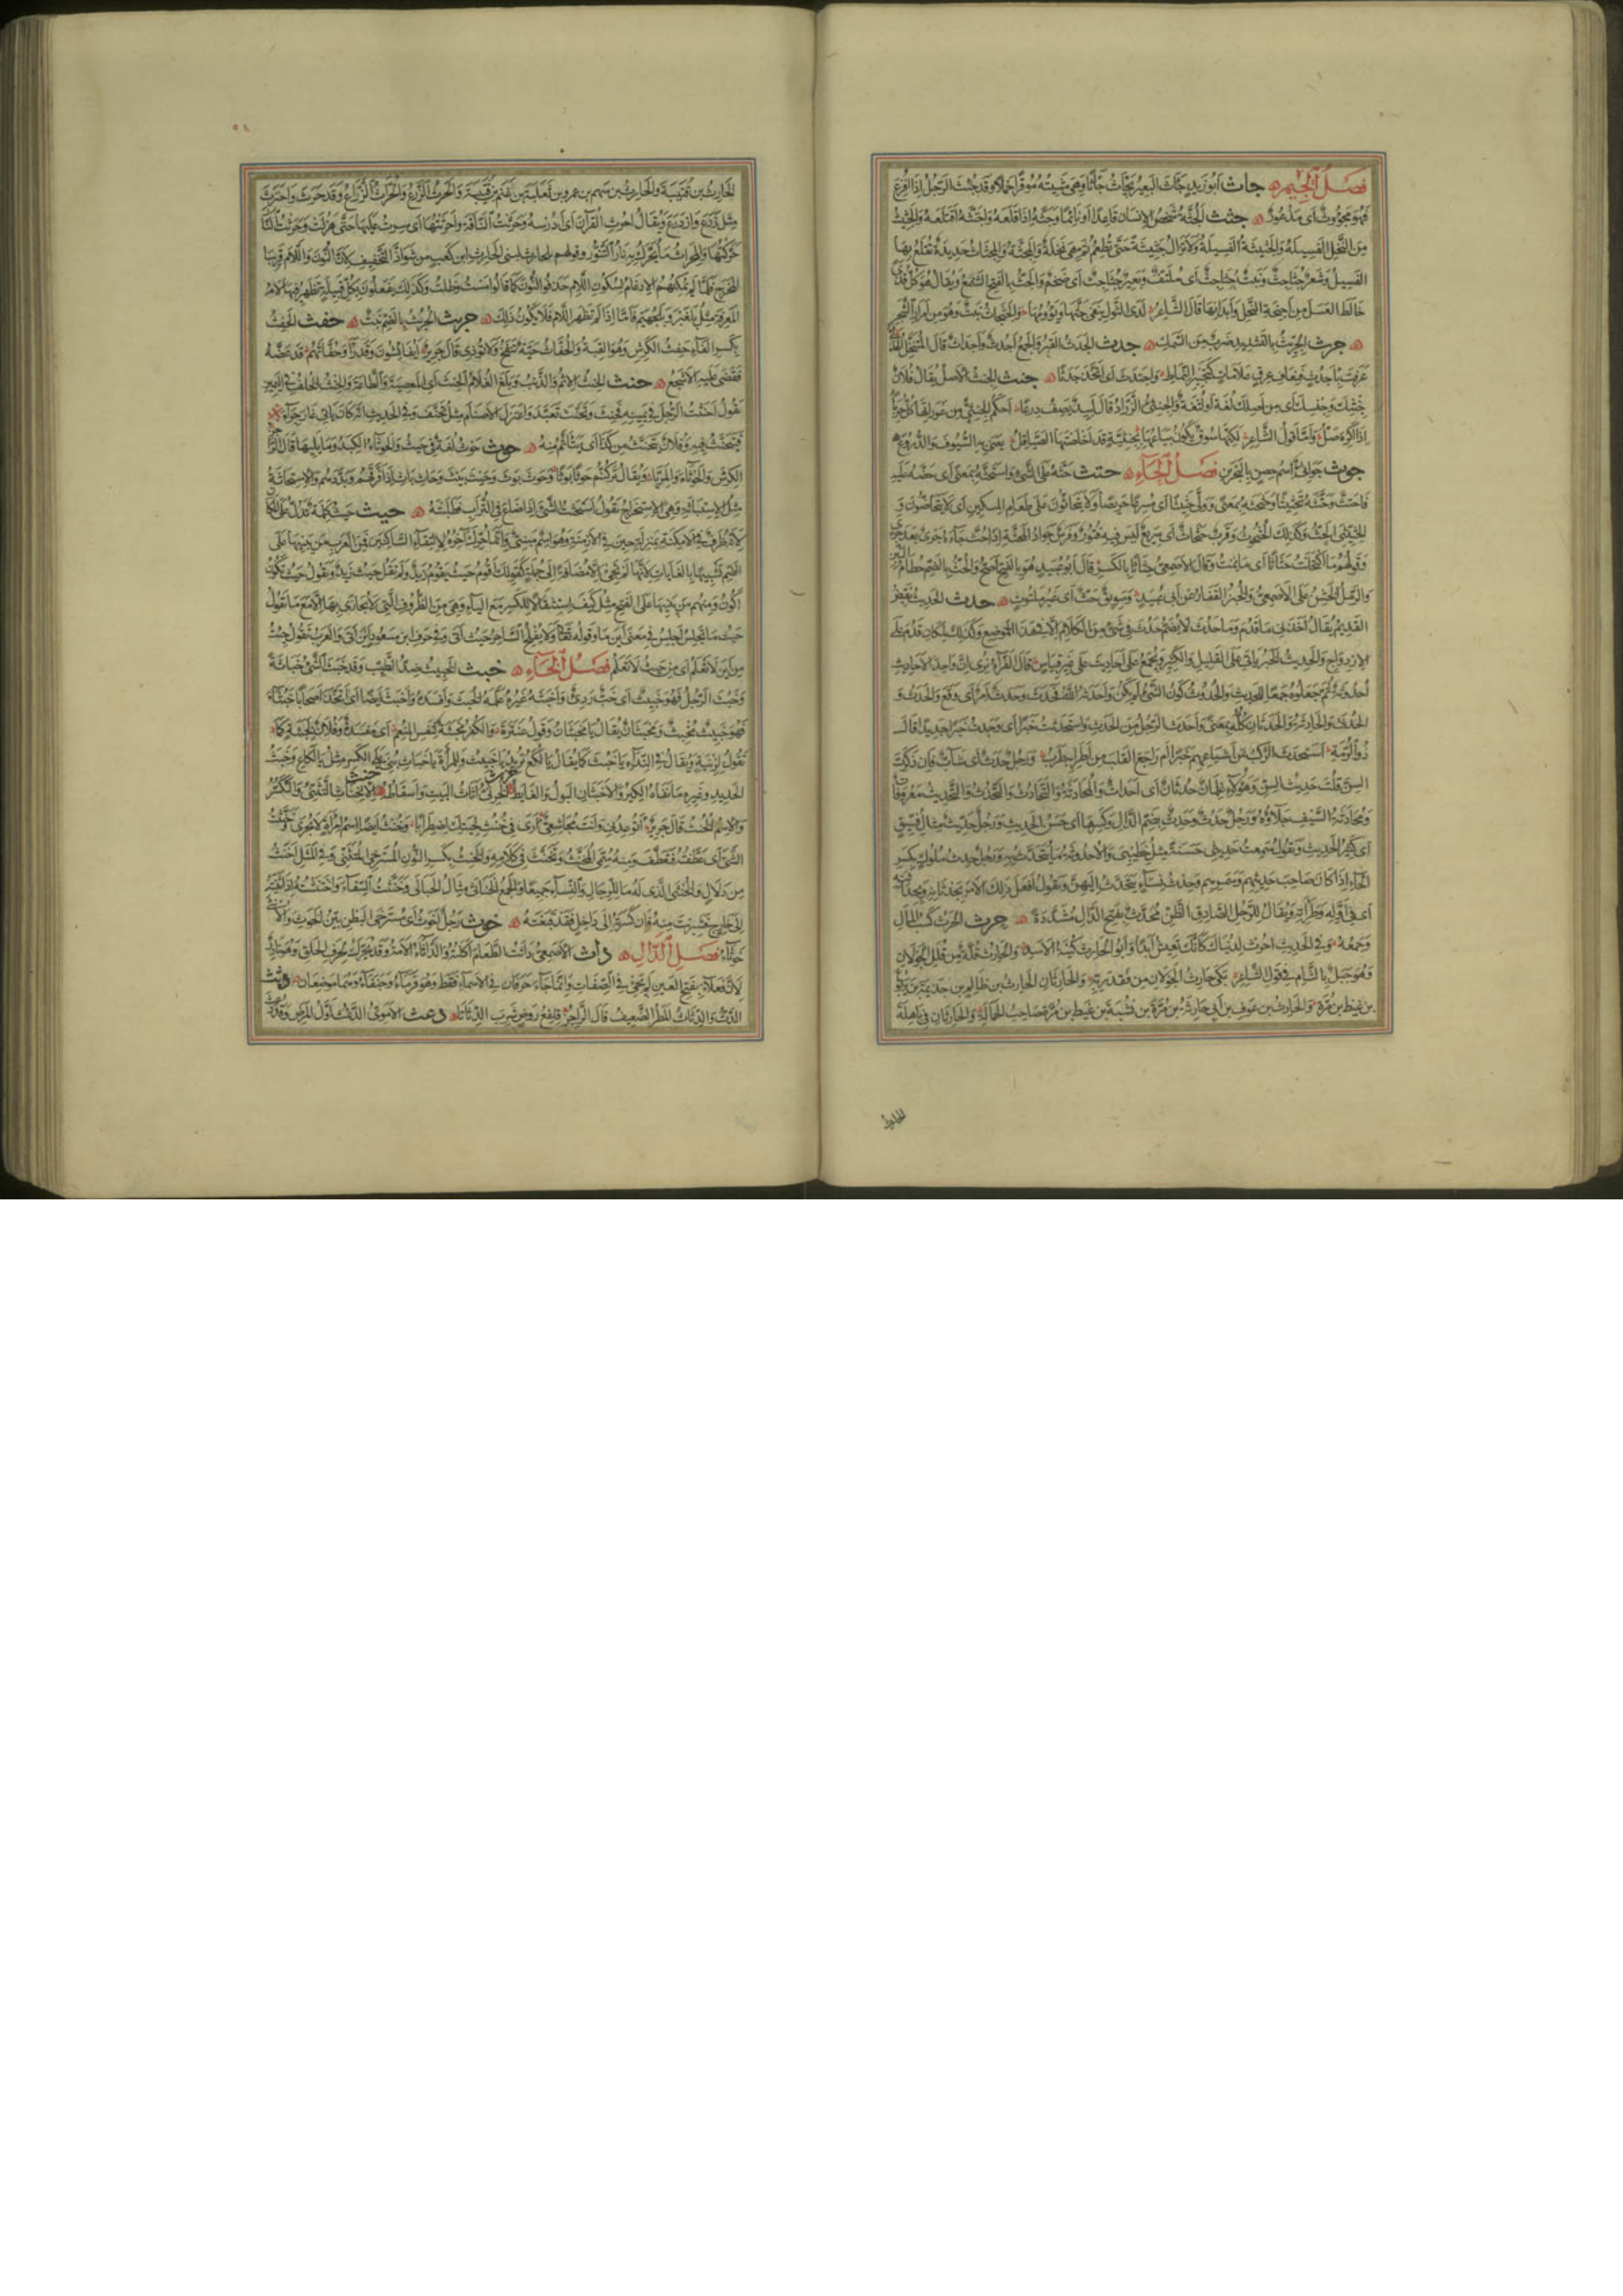 فصل الجيم جأث ابو زيد جَئِثَ البعير يجأث جأثا وهي مشيته موقرا حملا وقد جُئث الرجل اذا افزع
فهو مجؤوث اى مذعور جثث الجثة شخص الانسان قاعدا او نائما وجثه اذا قلعه واجتثه اقتلعه والجثيث
من النخل الفسيلة والجثيثة الفسيلة ولا تزال جثيثة حتى تطعم ثم هى نخلة والمجثة والمجثاث حديدة تقلع بها
الفسيل وشعر جثاجث ونبت جثاجث اى ملتف وبعير جثاجث اى ضخم والجث بالفتح الشمع ويقال هو كل قذى
خالط العسل من اجنحة النحل وابدانها قال الشاعر لدى الثول ينفى جثها ويؤومها والجثجاث نبت وهو من امرار الشجر
جرث الجريث بالتشديد ضرب من السمك جدث الجدث القبر والجمع اجدث واجداث قال المتنخل الهذلى
عرفت باجدث فنعاف عرق علامات كتحبير النماط واجتدث اى اتخذ جدثا جنث الجنث الاصل يقال فلان
من جنثك وجنسك اى من اصلك لغة او لثغة والجنثى الزراد قال لبيد يصف درعا احكم الجنثى من عوراتها كل حرباء
اذا اكره صل واما قول الشاعر ولكنها سوق يكون بياعها بجنثية قد اخلصتها الصياقل يعنى به السيوف والدروع
جوث جواثى اسم حصن بالبحرين فصل الحاء حثث حثه على الشىء واستحثه بمعنى اى حضه عليه
فاحتث وحثثه تحثيثا وحثحثه بمعنى وولى حثيثا اى مسرعا حريصا ولا يتحاثون على طعام المسكين اى لا يتحاضون و
الحثيثى الحث وكذلك الحثحوث وقرب حثحاث اى سريع ليس فيه فتور وفرس جواد المحثة اذا حث جاء جرى بعد جرى
وقولهم ما اكتحلت حثاثا اى ما نمت وقال الاصمعى حثاثا بالكسر قال ابو عبيد وهو بالفتح اصح والحث بالضم حطام التبن
والرمل الخشن عن الاصمعى والخبز القفار عن ابى عبيد وسويق حث اى غير ملتوت حدث الحديث نقيض
القديم يقال اخذنى ما قدم وما حدث لا يضم حدث فى شىء من الكلام الا فى هذا الموضع وذلك لمكان قدم على
الازدواج والحديث الخبر ياتى على القليل والكثير ويجمع على احاديث على غير قياس قال الفراء نرى ان واحد الاحاديث
احدوثة ثم جعلوه جمعا للحديث والحدوث كون الشىء لم يكن واحدثه الله فحدث وحدث امر اى وقع والحدث و
الحدثى والحادثة والحدثان كله بمعنى واحدث الرجل من الحدث واستحدثت خبرا اى وجدت خبرا جديدا قال
ذو الرمة استحدث الركب عن اشياعهم خبرا ام راجع القلب من اطرابه طرب ورجل حدث اى شاب فان ذكرت
السن قلت حديث السن وهؤلاء غلمان حدثان اى احداث والمحادثة والتحادث والتحدث والتحديث معروفات
ومحادثة السيف جلاؤه ورجل حدث وحدث بضم الدال وكسرها اى حسن الحديث ورجل حديث مثال فسيق
اى كثير الحديث وتقول سمعت حديثى حسنة مثل خطيبى والاحدوثة ما يتحدث به ورجل حدث ملوك بكسر
الحاء اذا كان صاحب حديثهم وسمرهم وحدث نساء يتحدث اليهن وتقول افعل ذلك الامر بحدثانه وبحداثته
اى فى اوله وطراءته ويقال للرجل الصادق الظن محدث بفتح الدال مشددة حرث الحرث كسب المال
وجمعه وفى الحديث احرث لدنياك كانك تعيش ابدا وابو الحارث كنية الاسد والحارث قلة من قلل الجولان
وهو جبل بالشام فى قول الشاعر بكى حارث الجولان من فقد ربه والحارثان الحارث بن ظالم بن جذيمة بن يربوع
بن غيظ بن مرة والحارث بن عوف بن ابى حارثة بن مرة بن نشبة بن غيظ بن مرة صاحب الحمالة والحارثان فى باهلة
الحارث
الحارث بن قتيبة والحارث بن سهم بن عمرو بن ثعلبة بن غنم بن قتيبة والحرث الزرع والحراث الزراع وقد حرث واحترث
مثل زرع وازدرع ويقال احرث القرآن اى ادرسه وحرثت الناقة واحرثتها اى سرت عليها حتى هزلت وحرثت النار
حركتها والمحراث ما تحرك به نار التنور وقولهم بلحارث لبنى الحارث ابن كعب من شواذ التخفيف لان النون واللام قريبا
المخرج فلما لم يمكنهم الادغام لسكون اللام حذفوا النون كما قالوا مست وظلت وكذلك يفعلون بكل قبيلة تظهر فيها لام
المعرفة مثل بلعنبر وبلهجيم فاما اذا لم تظهر اللام فلا يكون ذلك حربث الحربث بالضم نبت حفث الحفث
بكسر الفاء حفث الكرش وهو القبة والحفاث حية تنفخ ولا تؤذى قال جرير ايفايشون وقد راوا حفاثهم قد عضه
فقضى عليه الاشجع حنث الحنث الاثم والذنب وبلغ الغلام الحنث اى المعصية والطاعة والحنث الخلف فى اليمين
تقول احنثت الرجل فى يمينه فحنث وتحنث تعبد واعتزل الاصنام مثل تحنف وفى الحديث انه كان ياتى غار حراء
فيتحنث فيه وفلان يتحنث من كذا اى يتاثم منه حوث حوث لغة فى حيث والحوثاء الكبد وما يليها قال الراجز
الكرش والحوثاء والمريا ويقال تركتهم حوثا بوثا وحوث بوث وحيث بيث وحاث باث اذا فرقهم وبددهم والاستحاثة
مثل الاستباثة وهى الاستخراج تقول استحثت الشىء اذا ضاع فى التراب فطلبته حيث حيث كلمة تدل على المكان
لانه ظرف فى الامكنة بمنزلة حين فى الازمنة وهو اسم مبنى وانما حرك اخره لالتقاء الساكنين فمن العرب من يبنيها على
الضم تشبيها بالغايات لانها لم تجئ الا مضافة الى جملة كقولك اقوم حيث يقوم زيد ولم تقل حيث زيد وتقول حيث تكون
اكون ومنهم من يبنيها على الفتح مثل كيف استثقالا للكسر مع الياء وهى من الظروف التى لا يجازى بها الا مع ما تقول
حيث ما تجلس اجلس فى معنى اين ما وقوله تعالى ولا يفلح الساحر حيث اتى وفى حرف ابن مسعود اين اتى والعرب تقول جئت
من اين لا تعلم اى من حيث لا تعلم فصل الخاء خبث الخبيث ضد الطيب وقد خبث الشىء خباثة
وخبث الرجل فهو خبيث اى خب ردىء واخبثه غيره علمه الخبث وافسده واخبث ايضا اى اتخذ اصحابا خبثاء
فهو خبيث مخبث ومخبثان يقال يا مخبثان وقول عنترة والكفر مخبثة لنفس المنعم اى مفسدة وفلان لخبثة كما
تقول لزنية ويقال فى النداء يا خبث كما يقال يا لكع تريد يا خبيث وللمراة يا خباث بنى على الكسر مثل يا لكاع وخبث
الحديد وغيره ما نفاه الكير والاخبثان البول والغايط خرث الخرثى اثاث البيت واسقاطه خنث الانخناث التثنى والتكسر
والاسم الخنث قال جرير اتوعدنى وانت مجاشعى ارى فى خنث لحيتك اضطرابا وخنث ايضا اسم امراة لا يجرى وخنثت
الشىء اى عطفته فتعطف ومنه سمى المخنث وتخنث فى كلامه والخنث بكسر النون المسترخى المتثنى وفى المثل اخنث
من دلال والخنثى الذى له ما للرجال والنساء جميعا والجمع الخناثى مثال الحبالى وخنثت السقاء واختنثته اذا ثنيته
الى خارج فشربت منه فان كسرته الى داخل فقد قبعته خوث رجل اخوث اى مسترخى البطن بين الخوث والانثى
خوثاء فصل الدال دأث الاصمعى دأثت الطعام اكلته والدأثاء الامة وقد يحرك لحرف الحلق وهو نادر
لان فعلاء بفتح العين لم يجئ فى الصفات وانما جاء حرفان فى الاسماء فقط وهو قرماء وجنفاء وهما موضعان دثث
الدث والدثاث المطر الضعيف قال الراجز قلفع روض شرب الدثاثا دعث الاموى الدعث اول المرض وقد